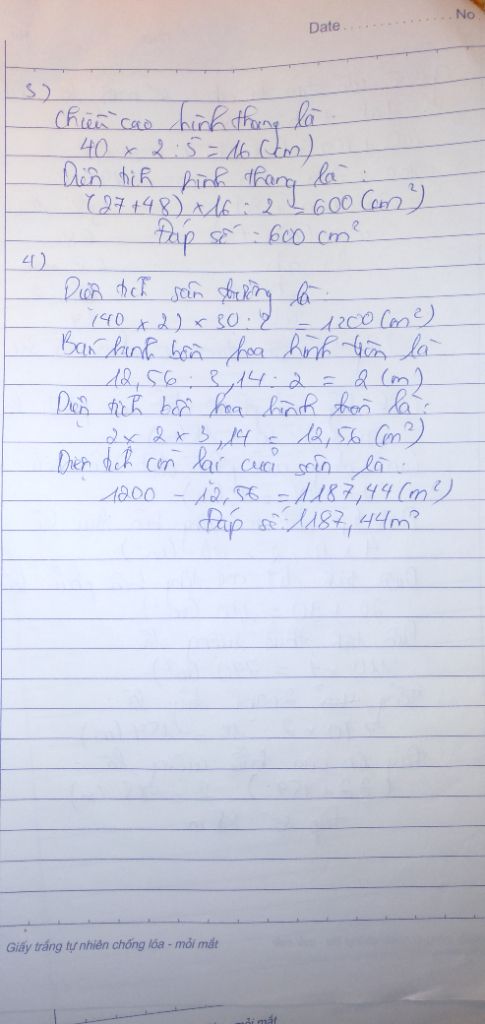 Date No
3)
Chiều cao hình thang là
40 x 2 : 5 = 16 (cm)
Diện tích hình thang là :
(27 + 48) x 16 : 2 = 600 (cm²)
Đáp số : 600 cm²
4)
Diện tích sân trường là
(40 x 2) x 30 : 2 = 1200 (m²)
Bán kính bồn hoa hình tròn là
12,56 : 3,14 : 2 = 2 (m)
Diện tích bồn hoa hình tròn là :
2 x 2 x 3,14 = 12,56 (m²)
Diện tích còn lại của sân là :
1200 - 12,56 = 1187,44 (m²)
Đáp số : 1187,44 m²
Giấy trắng tự nhiên chống lóa - mỏi mắt
mỏi mắt